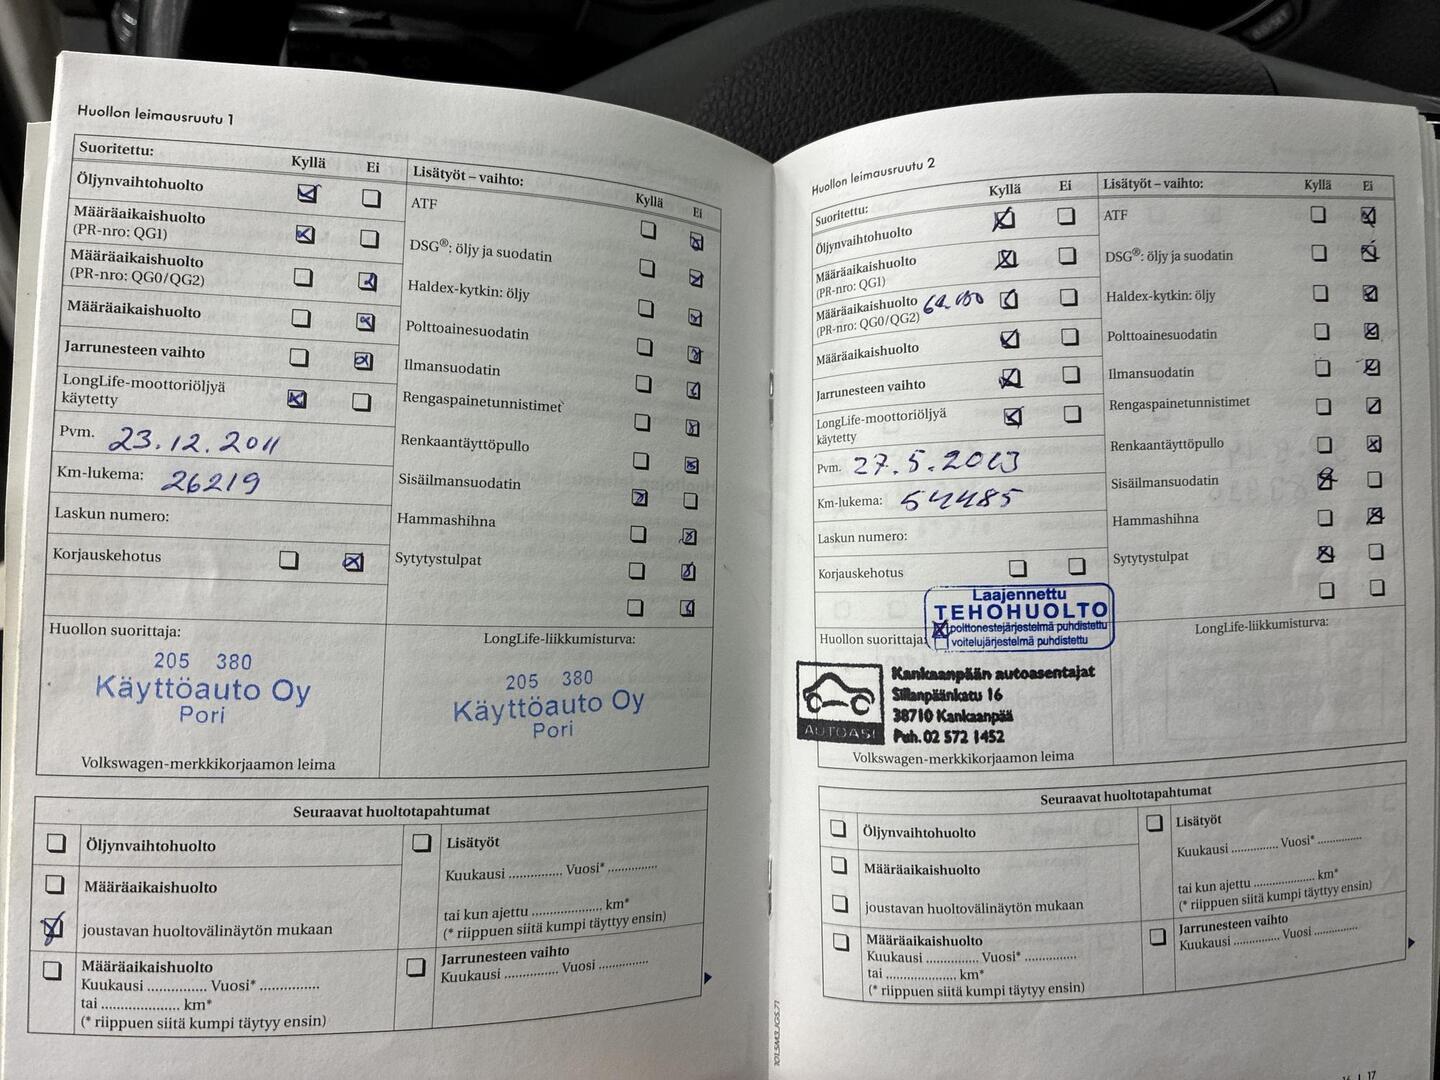 Huollon leimausruutu 1
Suoritettu: Kyllä Ei
Öljynvaihtohuolto
Määräaikaishuolto
(PR-nro: QG1)
Määräaikaishuolto
(PR-nro: QG0/QG2)
Määräaikaishuolto
Jarrunesteen vaihto
LongLife-moottoriöljyä
käytetty
Pvm. 23.12.2011
Km-lukema: 26219
Laskun numero:
Korjauskehotus
Lisätyöt – vaihto: Kyllä Ei
ATF
DSG®: öljy ja suodatin
Haldex-kytkin: öljy
Polttoainesuodatin
Ilmansuodatin
Rengaspainetunnistimet
Renkaantäyttöpullo
Sisäilmansuodatin
Hammashihna
Sytytystulpat
Huollon suorittaja:
205 380
Käyttöauto Oy
Pori
Volkswagen-merkkikorjaamon leima
LongLife-liikkumisturva:
205 380
Käyttöauto Oy
Pori
Seuraavat huoltotapahtumat
Öljynvaihtohuolto
Määräaikaishuolto
joustavan huoltovälinäytön mukaan
Määräaikaishuolto
Kuukausi ............... Vuosi* ...............
tai .................... km*
(* riippuen siitä kumpi täytyy ensin)
Lisätyöt
Kuukausi .............. Vuosi* .............
tai kun ajettu .................. km*
(* riippuen siitä kumpi täyttyy ensin)
Jarrunesteen vaihto
Kuukausi .............. Vuosi .............
Huollon leimausruutu 2
Suoritettu: Kyllä Ei
Öljynvaihtohuolto
Määräaikaishuolto
(PR-nro: QG1)
Määräaikaishuolto
(PR-nro: QG0/QG2)
Määräaikaishuolto
Jarrunesteen vaihto
LongLife-moottoriöljyä
käytetty
Pvm. 27.5.2013
Km-lukema: 54485
Laskun numero:
Korjauskehotus
Lisätyöt – vaihto: Kyllä Ei
ATF
DSG®: öljy ja suodatin
Haldex-kytkin: öljy
Polttoainesuodatin
Ilmansuodatin
Rengaspainetunnistimet
Renkaantäyttöpullo
Sisäilmansuodatin
Hammashihna
Sytytystulpat
Laajennettu
TEHOHUOLTO
polttonestejärjestelmä puhdistettu
voitelujärjestelmä puhdistettu
Huollon suorittaja:
AUTOASI
Kankaanpään autoasentajat
Sillanpäänkatu 16
38710 Kankaanpää
Puh. 02 572 1452
Volkswagen-merkkikorjaamon leima
LongLife-liikkumisturva:
Seuraavat huoltotapahtumat
Öljynvaihtohuolto
Määräaikaishuolto
joustavan huoltovälinäytön mukaan
Määräaikaishuolto
Kuukausi ............. Vuosi* .............
tai .................. km*
(* riippuen siitä kumpi täytyy ensin)
Lisätyöt
Kuukausi ............. Vuosi* .............
tai kun ajettu .................. km*
(* riippuen siitä kumpi täyttyy ensin)
Jarrunesteen vaihto
Kuukausi ............. Vuosi .............
17